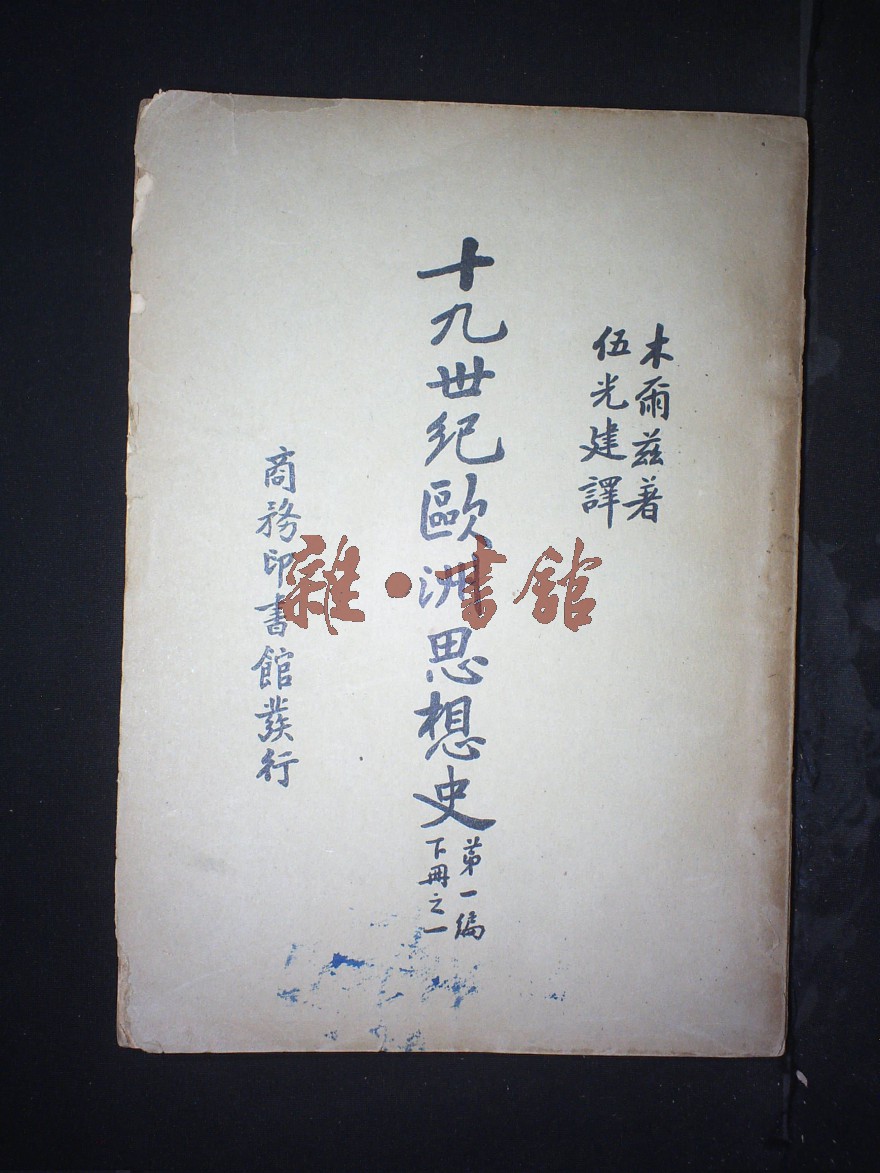 木爾茲著
伍光建譯
十九世紀歐洲思想史
第一編
下冊之一
商務印書館發行
雜·書館